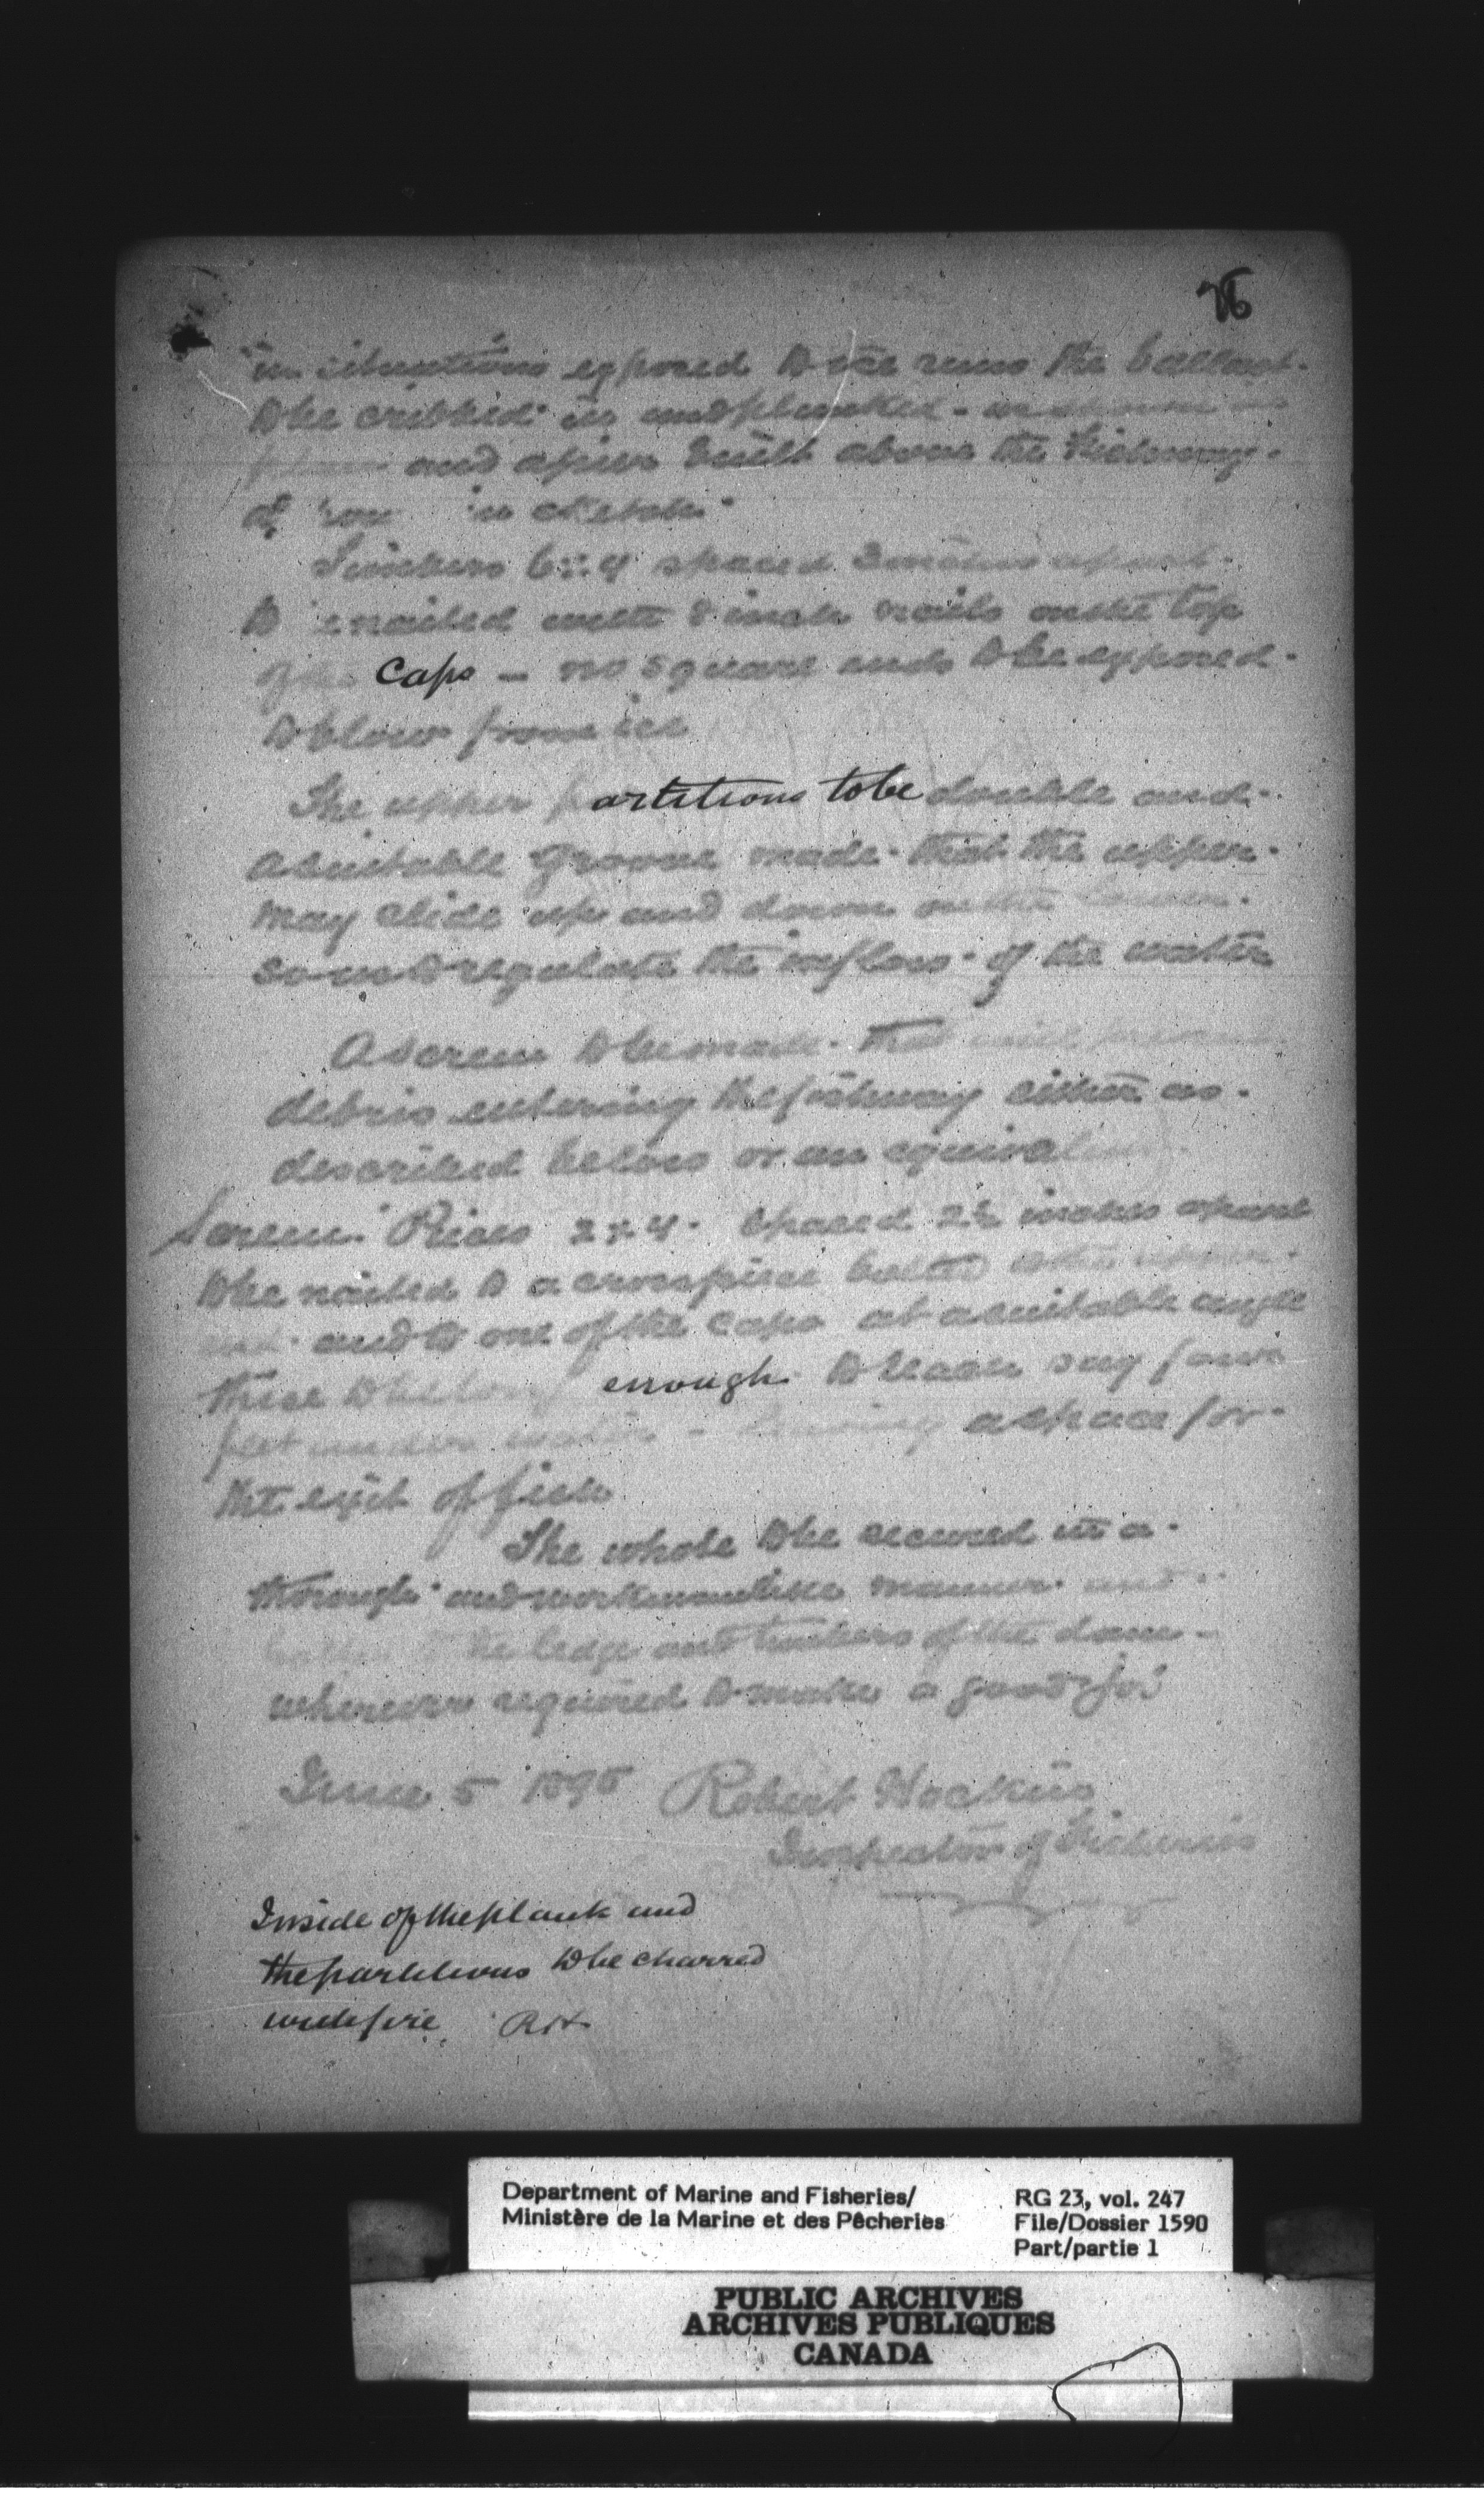 76
in situations exposed to ice runs the ballast
to be cribbed in and planked - as shown
and a pier built above the Fishway
in sketch
6 x 4 spaced 3 inches apart
to nailed with 8 inch nails onto top
of the Caps - no square ends to be exposed
to blow from ice
The upper partitions to be double and
a suitable groove made that the upper
may slide up and down on the lower
so as to regulate the inflow of the water
A screen to be made that will prevent
debris entering the fishway either as
described below or an equivalent
Screen Pieces 2 x 4 spaced 2½ inches apart
to be nailed to a crosspiece bolted
and to one of the caps at a suitable angle
these to be long enough to reach say four
feet under water - leaving a space for
the exit of fish
The whole to be secured in a
thorough and workmanlike manner and
the ledge and timbers of the dam
wherever required to make a good job
June 5 1895 Robert Hockin
Inspector of Fisheries
Inside of the plank and
the partitions to be charred
with fire RH
Department of Marine and Fisheries/
Ministère de la Marine et des Pêcheries
RG 23, vol. 247
File/Dossier 1590
Part/partie 1
PUBLIC ARCHIVES
ARCHIVES PUBLIQUES
CANADA